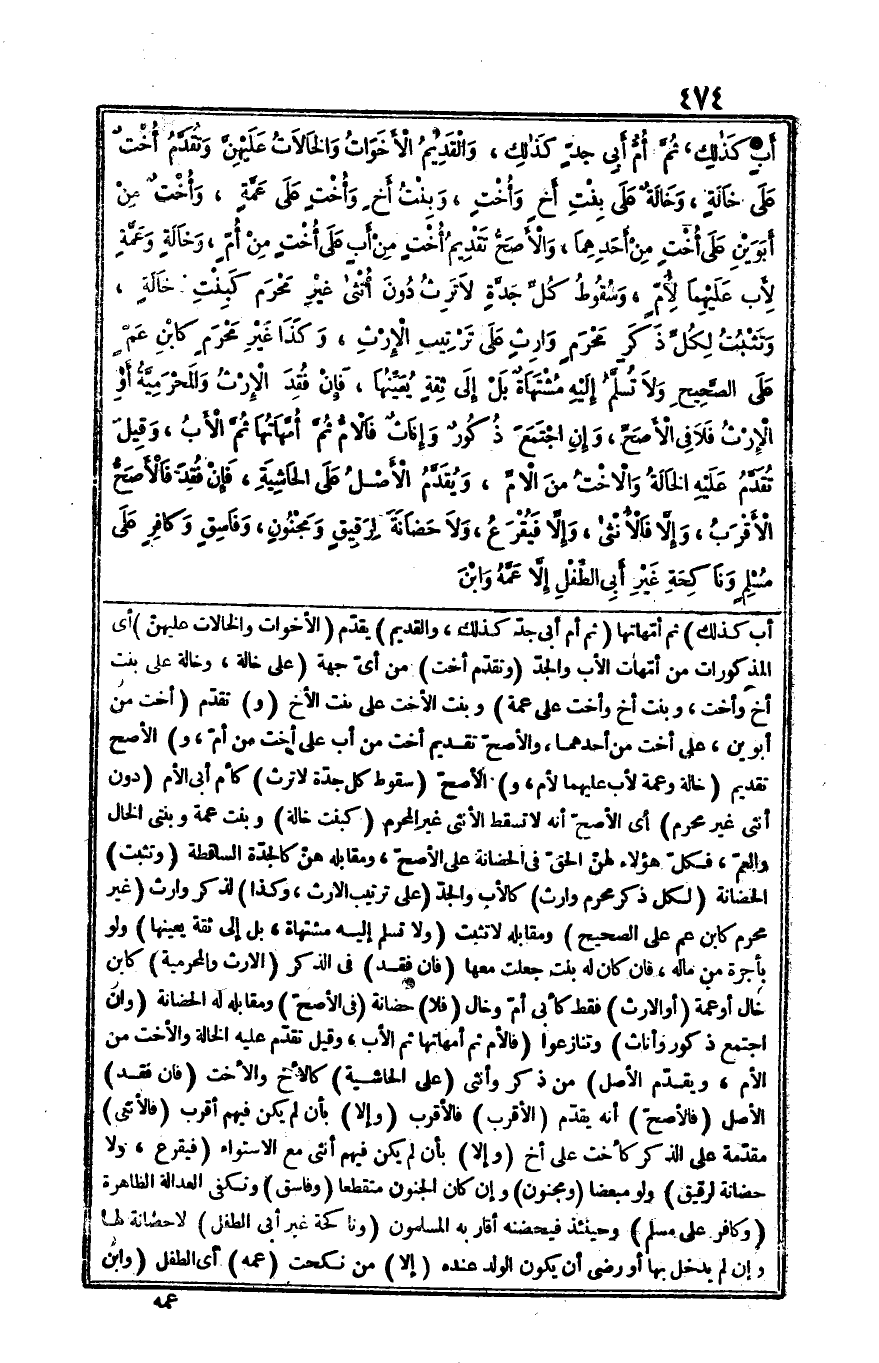 ٤٧٤
أَبٍ كَذٰلِكَ، ثُمَّ أُمُّ أَبِى جدٍّ كَذٰلِكَ ، وَالْقَدِيمُ الْأَخَوَاتُ وَالخَالَاتُ عَلَيْهِنَّ وَتُقَدَّمُ أُخْتٌ
عَلَى خَالَةٍ ، وَخَالَةٌ عَلَى بِنْتِ أَخٍ وَأُخْتٍ ، وَبِنْتُ أَخٍ وَأُخْتٍ عَلَى عَمَّةٍ ، وَأُخْتٌ مِنْ
أَبَوَيْنِ عَلَى أُخْتٍ مِنْ أَحَدِهِمَا ، وَالْأَصَحُّ تَقْدِيمُ أُخْتٍ مِنْ أَبٍ عَلَى أُخْتٍ مِنْ أُمٍّ ، وَخَالَةٍ وَعَمَّةٍ
لِأَبٍ عَلَيْهِمَا لِأُمٍّ ، وَسُقُوطُ كُلِّ جَدَّةٍ لاَ تَرِثُ دُونَ أُنْثَى غَيْرِ مَحْرَمٍ كَبِنْتِ خَالَةٍ ،
وَتَثْبُتُ لِكُلِّ ذَكَرٍ مَحْرَمٍ وَارِثٍ عَلَى تَرْتِيبِ الْإِرْثِ ، وَكَذَا غَيْرِ مَحْرَمٍ كَابْنِ عَمٍّ
عَلَى الصَّحِيحِ وَلاَ تُسَلَّمُ إِلَيْهِ مُشْتَهَاةٌ بَلْ إِلَى ثِقَةٍ يُعَيِّنُهَا ، فَإِنْ فُقِدَ الْإِرْثُ وَالمَحْرَمِيَّةُ أَوِ
الْإِرْثُ فَلاَ فِى الْأَصَحِّ ، وَإِنِ اجْتَمَعَ ذُكُورٌ وَإِنَاثٌ فَالْأُمُّ ثُمَّ أُمَّهَاتُهَا ثُمَّ الْأَبُ ، وَقِيلَ
تُقَدَّمُ عَلَيْهِ الخَالَةُ وَالْأُخْتُ مِنَ الْأُمِّ ، وَيُقَدَّمُ الْأَصْلُ عَلَى الحَاشِيَةِ ، فَإِنْ فُقِدَ فَالْأَصَحُّ
الْأَقْرَبُ ، وَإِلَّا فَالْأُنْثَى ، وَإِلَّا فَيُقْرَعُ ، وَلاَ حَضَانَةَ لِرَقِيقٍ وَمَجْنُونٍ ، وَفَاسِقٍ وَكَافِرٍ عَلَى
مُسْلِمٍ وَنَاكِحَةِ غَيْرِ أَبِى الطِّفْلِ إِلَّا عَمَّهُ وَابْنَ
أب كذلك) ثم أمهاتها (ثم أم أبى جدّ كذلك ، والقديم) يقدّم (الأخوات والخالات عليهنّ) أى
المذكورات من أمّهات الأب والجدّ (وتقدّم أخت) من أىّ جهة (على خالة ، وخالة على بنت
أخ وأخت ، وبنت أخ وأخت على عمة) وبنت الأخت على بنت الأخ (و) تقدّم (أخت من
أبوين ، على أخت من أحدهما ، والأصحّ تقديم أخت من أب على أخت من أمّ ، و) الأصح
تقديم (خالة وعمة لأب عليهما لأم ، و) الأصحّ (سقوط كل جدّة لاترث) كأم أبى الأم (دون
أنثى غير محرم) أى الأصحّ أنه لاتسقط الأنثى غير المحرم (كبنت خالة) وبنت عمة وبنتى الخال
والعمّ ، فكلّ هؤلاء لهنّ الحقّ فى الحضانة على الأصحّ ، ومقابله هنّ كالجدّة الساقطة (وتثبت)
الحضانة (لكل ذكر محرم وارث) كالأب والجدّ (على ترتيب الارث ، وكذا) لذكر وارث (غير
محرم كابن عم على الصحيح) ومقابله لاتثبت (ولا تسلم إليه مشتهاة ، بل إلى ثقة يعينها) ولو
بأجرة من ماله ، فان كان له بنت جعلت معها (فان فقد) فى الذكر (الارث والمحرمية) كابن
خال أوعمة (أوالارث) فقط كأبى أمّ وخال (فلا) حضانة (فى الأصحّ) ومقابله له الحضانة (وان
اجتمع ذكور وأناث) وتنازعوا (فالأم ثم أمهاتها ثم الأب ، وقيل تقدّم عليه الخالة والأخت من
الأم ، ويقدّم الأصل) من ذكر وأنثى (على الحاشية) كالأخ والأخت (فان فقد)
الأصل (فالأصحّ) أنه يقدّم (الأقرب) فالأقرب (وإلا) بأن لم يكن فيهم أقرب (فالأنثى)
مقدّمة على الذكر كأخت على أخ (وإلا) بأن لم يكن فيهم أنثى مع الاستواء (فيقرع ، ولا
حضانة لرقيق) ولو مبعضا (ومجنون) وإن كان الجنون متقطعا (وفاسق) وتكفى العدالة الظاهرة
(وكافر على مسلم) وحينئذ فيحضنه أقاربه المسلمون (وناكحة غير أبى الطفل) لاحضانة لها
وإن لم يدخل بها أو رضى أن يكون الولد عنده (إلا) من نكحت (عمه) أى الطفل (وابن
عمه